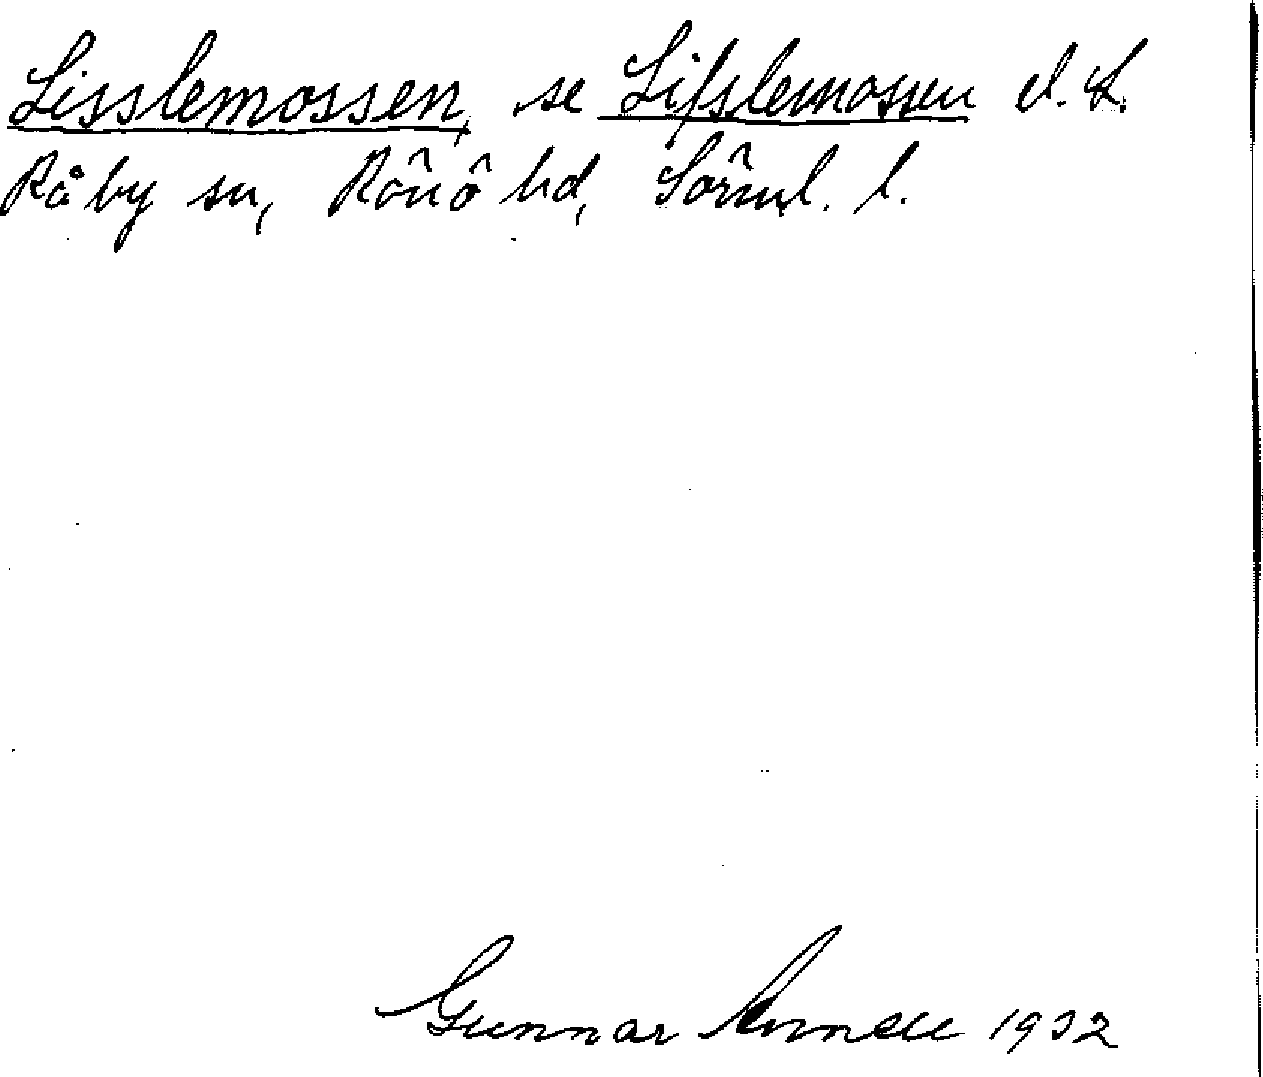 Lisslemossen, se Lisslemossen d. L.
Råby sn, Rönö hd, Sörml. l.
Gunnar 1932